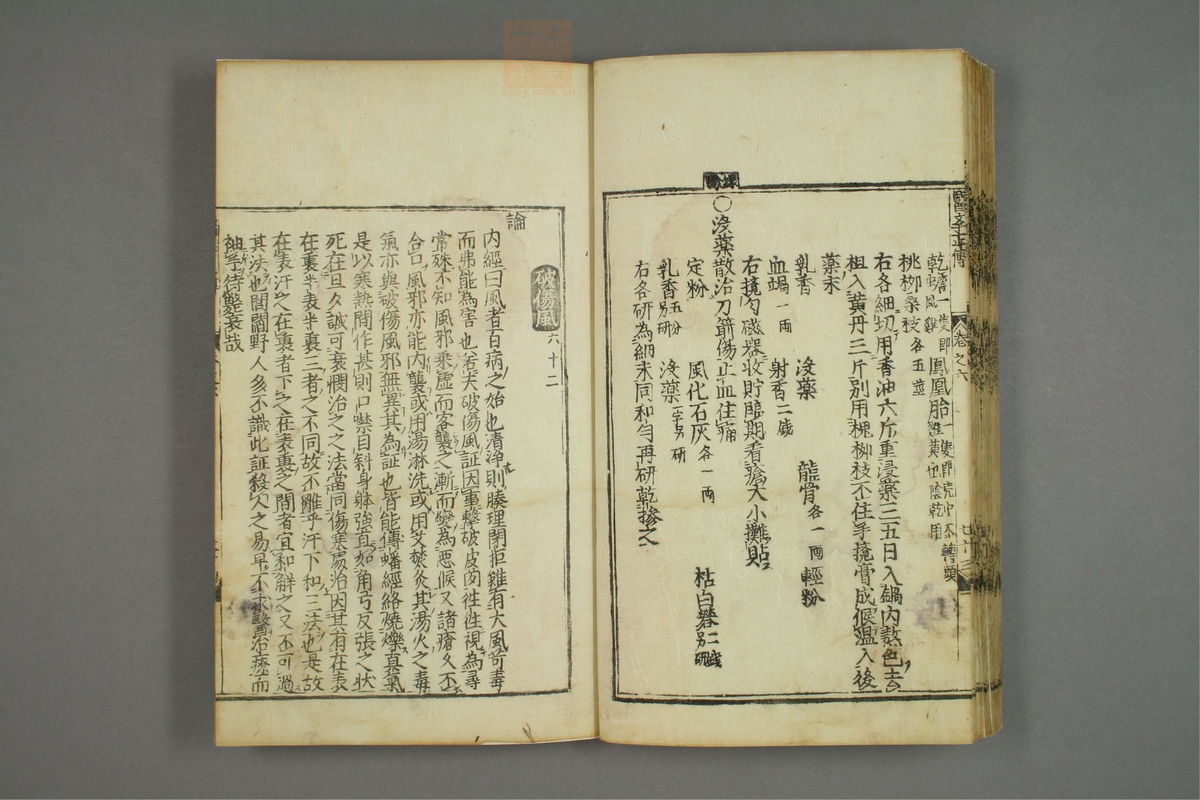 醫學正傳
卷之六
乾蟾一隻即乾蟾風雞 鳳凰胎一隻即兒中不轉頭雞糞也陰乾用
桃柳桑枝各五莖
右各細切用香油六斤重浸藥三五日入鍋内熬色去
柤入黄丹三斤别用槐柳枝不住手攪膏成候温入後
藥末
乳香 没藥 龍骨各一兩 輕粉
血竭一兩 射香二錢
右攪匀磁器收貯臨期看瘡大小攤貼
○没藥散治刀箭傷止血住痛
定粉 風化石灰各一兩 枯白礬二錢别研
乳香五分别研 没藥一字另研
右各研為細末同和匀再研乾摻之
破傷風 六十二
論
内經曰風者百病之始也清净則腠理閉拒雖有大風苛毒
而弗能為害也若夫破傷風証因事擊破皮肉徃徃視為尋
常殊不知風邪乘虚而客襲之漸而變為惡候又諸瘡久不
合口風邪亦能内襲或用湯淋洗或用艾焚灸其湯火之毒
氣亦與破傷風邪無異其為証也皆能傳播經絡燒爍真氣
是以寒熱間作甚則口噤目斜身躰強直如角弓反張之状
死在旦夕誠可哀憫治之之法當同傷寒處治因其有在表
在裏半表半裏三者之不同故不離乎汗下和三法也是故
在表汗之在裏者下之在表裏之間者宜和解之又不可過
其法也閭閻野人多不識此証殺人之易早不求醫治療而
袖手待斃哀哉